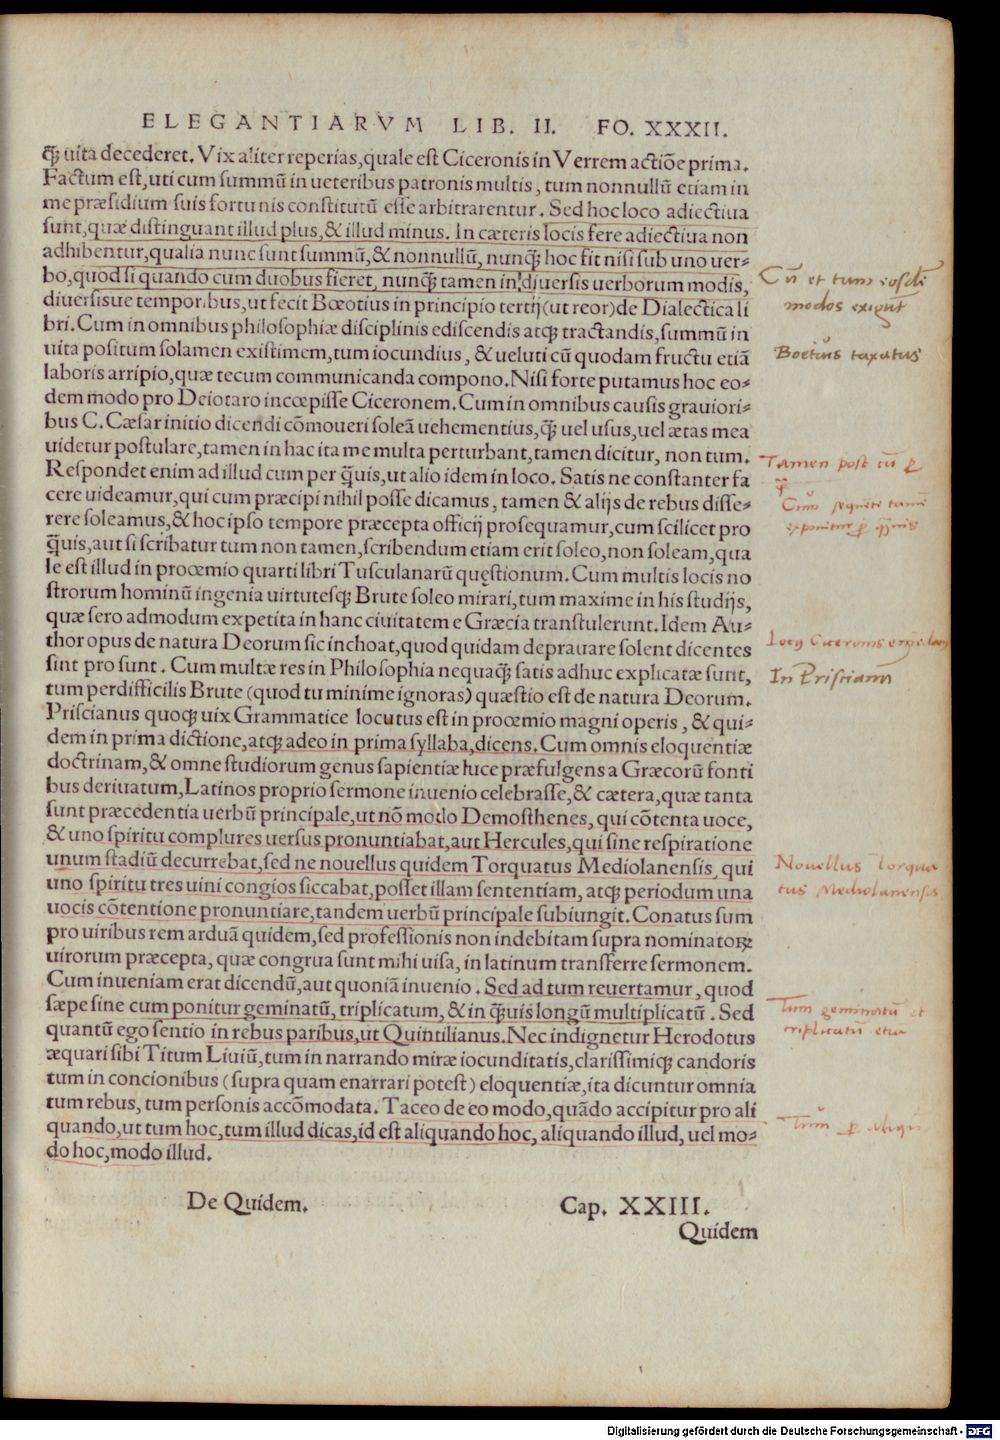 ELEGANTIARVM LIB. II. FO. XXXII.
ꝗ̃ uita decederet. Vix aliter reperias, quale est Ciceronis in Verrem actiōe prima.
Factum est, uti cum summū in ueteribus patronis multis, tum nonnullū etiam in
me præsidium suis fortunis constitutū esse arbitrarentur. Sed hoc loco adiectiua
sunt, quæ distinguant illud plus, & illud minus. In cæteris locis fere adiectiua non
adhibentur, qualia nunc sunt summū, & nonnullū, nunꝗ̃ hoc fit nisi sub uno uer-
bo, quod si quando cum duobus fieret, nunꝗ̃ tamen in diuersis uerborum modis,
diuersisue temporibus, ut fecit Bœotius in principio tertij (ut reor) de Dialectica li
bri. Cum in omnibus philosophiæ disciplinis ediscendis atqꝫ tractandis, summū in
uita positum solamen existimem, tum iocundius, & ueluti cū quodam fructu etiā
laboris arripio, quæ tecum communicanda compono. Nisi forte putamus hoc eo-
dem modo pro Deiotaro incœpisse Ciceronem. Cum in omnibus causis grauiori-
bus C. Cæsar initio dicendi cōmoueri soleā uehementius, ꝗ̃ uel usus, uel ætas mea
uidetur postulare, tamen in hac ita me multa perturbant, tamen dicitur, non tum.
Respondet enim ad illud cum per ꝗ̃uis, ut alio idem in loco. Satis ne constanter fa
cere uideamur, qui cum præcipi nihil posse dicamus, tamen & alijs de rebus disse-
rere soleamus, & hoc ipso tempore præcepta officij prosequamur, cum scilicet pro
ꝗ̃uis, aut si scribatur tum non tamen, scribendum etiam erit soleo, non soleam, qua
le est illud in proœmio quarti libri Tusculanarū quęstionum. Cum multis locis no
strorum hominū ingenia uirtutesqꝫ Brute soleo mirari, tum maxime in his studijs,
quæ sero admodum expetita in hanc ciuitatem e Græcia transtulerunt. Idem Au-
thor opus de natura Deorum sic inchoat, quod quidam deprauare solent dicentes
sint pro sunt. Cum multæ res in Philosophia nequaꝗ̃ satis adhuc explicatæ sunt,
tum perdifficilis Brute (quod tu minime ignoras) quæstio est de natura Deorum.
Priscianus quoqꝫ uix Grammatice locutus est in proœmio magni operis, & qui-
dem in prima dictione, atqꝫ adeo in prima syllaba, dicens. Cum omnis eloquentiæ
doctrinam, & omne studiorum genus sapientiæ luce præfulgens a Græcorū fonti
bus deriuatum, Latinos proprio sermone inuenio celebrasse, & cætera, quæ tanta
sunt præcedentia uerbū principale, ut nō modo Demosthenes, qui cōtenta uoce,
& uno spiritu complures uersus pronuntiabat, aut Hercules, qui sine respiratione
unum stadiū decurrebat, sed ne nouellus quidem Torquatus Mediolanensis, qui
uno spiritu tres uini congios siccabat, posset illam sententiam, atqꝫ periodum una
uocis cōtentione pronuntiare, tandem uerbū principale subiungit. Conatus sum
pro uiribus rem arduā quidem, sed professionis non indebitam supra nominatoꝝ
uirorum præcepta, quæ congrua sunt mihi uisa, in latinum transferre sermonem.
Cum inueniam erat dicendū, aut quoniā inuenio. Sed ad tum reuertamur, quod
sæpe sine cum ponitur geminatū, triplicatum, & in ꝗ̃uis longū multiplicatū. Sed
quantū ego sentio in rebus paribus, ut Quintilianus. Nec indignetur Herodotus
æquari sibi Titum Liuiū, tum in narrando miræ iocunditatis, clarissimiqꝫ candoris
tum in concionibus (supra quam enarrari potest) eloquentiæ, ita dicuntur omnia
tum rebus, tum personis accōmodata. Taceo de eo modo, quādo accipitur pro ali
quando, ut tum hoc, tum illud dicas, id est aliquando hoc, aliquando illud, uel mo-
do hoc, modo illud.
De Quidem. Cap. XXIII.
Quidem
Cū et tum eosdē
modos exigūt
Boetius taxatus
Tamen post cū
Cum
In Priscianū
Nouellus Torqua
tus Mediolanensis
Tum geminatū et
triplicatū
Tum
Digitalisierung gefördert durch die Deutsche Forschungsgemeinschaft - DFG